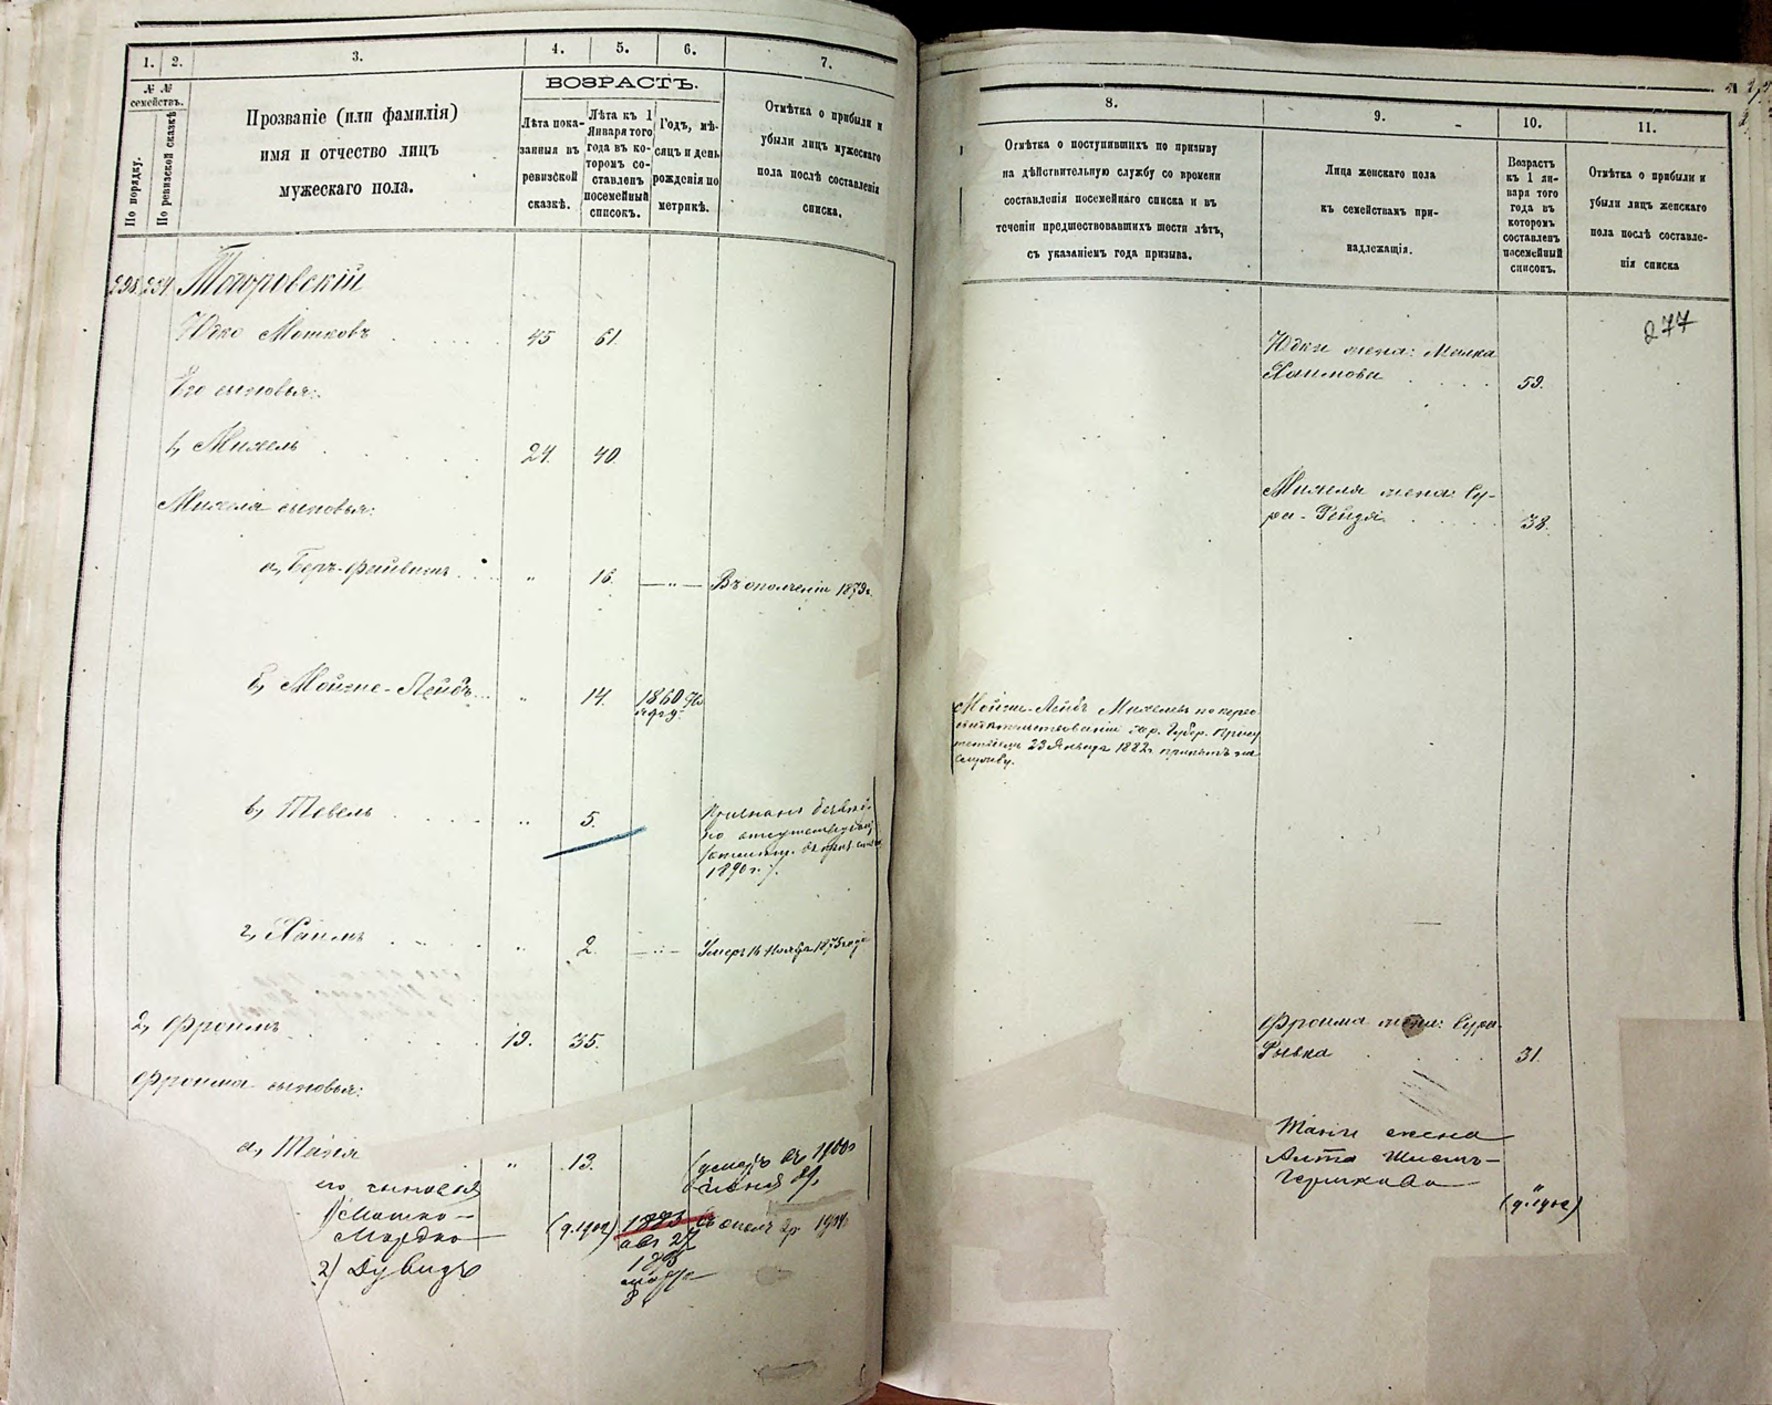 1. 2. 3. 4. 5. 6. 7.
№ №
семействъ.
По порядку.
По ревизской сказкѣ
Прозваніе (или фамилія)
имя и отчество лицъ
мужескаго пола.
ВОЗРАСТЪ.
Лѣта пока-
занныя въ
ревизской
сказкѣ.
Лѣта къ 1
Января того
года въ ко-
торомъ со-
ставленъ
посемейный
списокъ.
Годъ, мѣ-
сяцъ и день
рожденія по
метрикѣ.
Отмѣтка о прибыли и
убыли лицъ мужескаго
пола послѣ составленія
списка.
298 234
Юдко Мошковъ 45 61.
Его сыновья:
1, Михель 24. 40.
Михеля сыновья:
а, Беръ-Файвишъ " 16. —"— Въ ополченіи 1879г.
б, Мойше-Лейбъ " 14. 1860
в, Тевель " 5.
Признанъ
по
1890 г.).
г, Хаимъ " 2. —"— Умеръ 16 Ноября 1875 года
2, Фроимъ 19. 35.
Фроима сыновья:
а, Таня " 13. (умеръ въ 1900г
Іюня 29,
его сыновья
1) Мошко-
Мордко (д.1902) 1893 1914
авг 27
2) Дувидъ
8
8. 9. 10. 11.
Отмѣтка о поступившихъ по призыву
на дѣйствительную службу со времени
составленія посемейнаго списка и въ
теченіи предшествовавшихъ шести лѣтъ,
съ указаніемъ года призыва.
Лица женскаго пола
къ семействамъ при-
надлежащія.
Возрастъ
къ 1 ян-
варя того
года въ
которомъ
составленъ
посемейный
списокъ.
Отмѣтка о прибыли и
убыли лицъ женскаго
пола послѣ составле-
нія списка
277
Юдки жена: Малка
Хаимова 59.
Михеля жена: Су-
ра-Рейдя 38.
Мойше-Лейбъ Михелевъ по перео-
свидѣтельствованіи Губер. Прису
23 Января 1882г. принятъ на
службу.
Фроима жена: Сура-
Рывка 31.
Тани жена
Алта
Гершкова
(д. 1902)